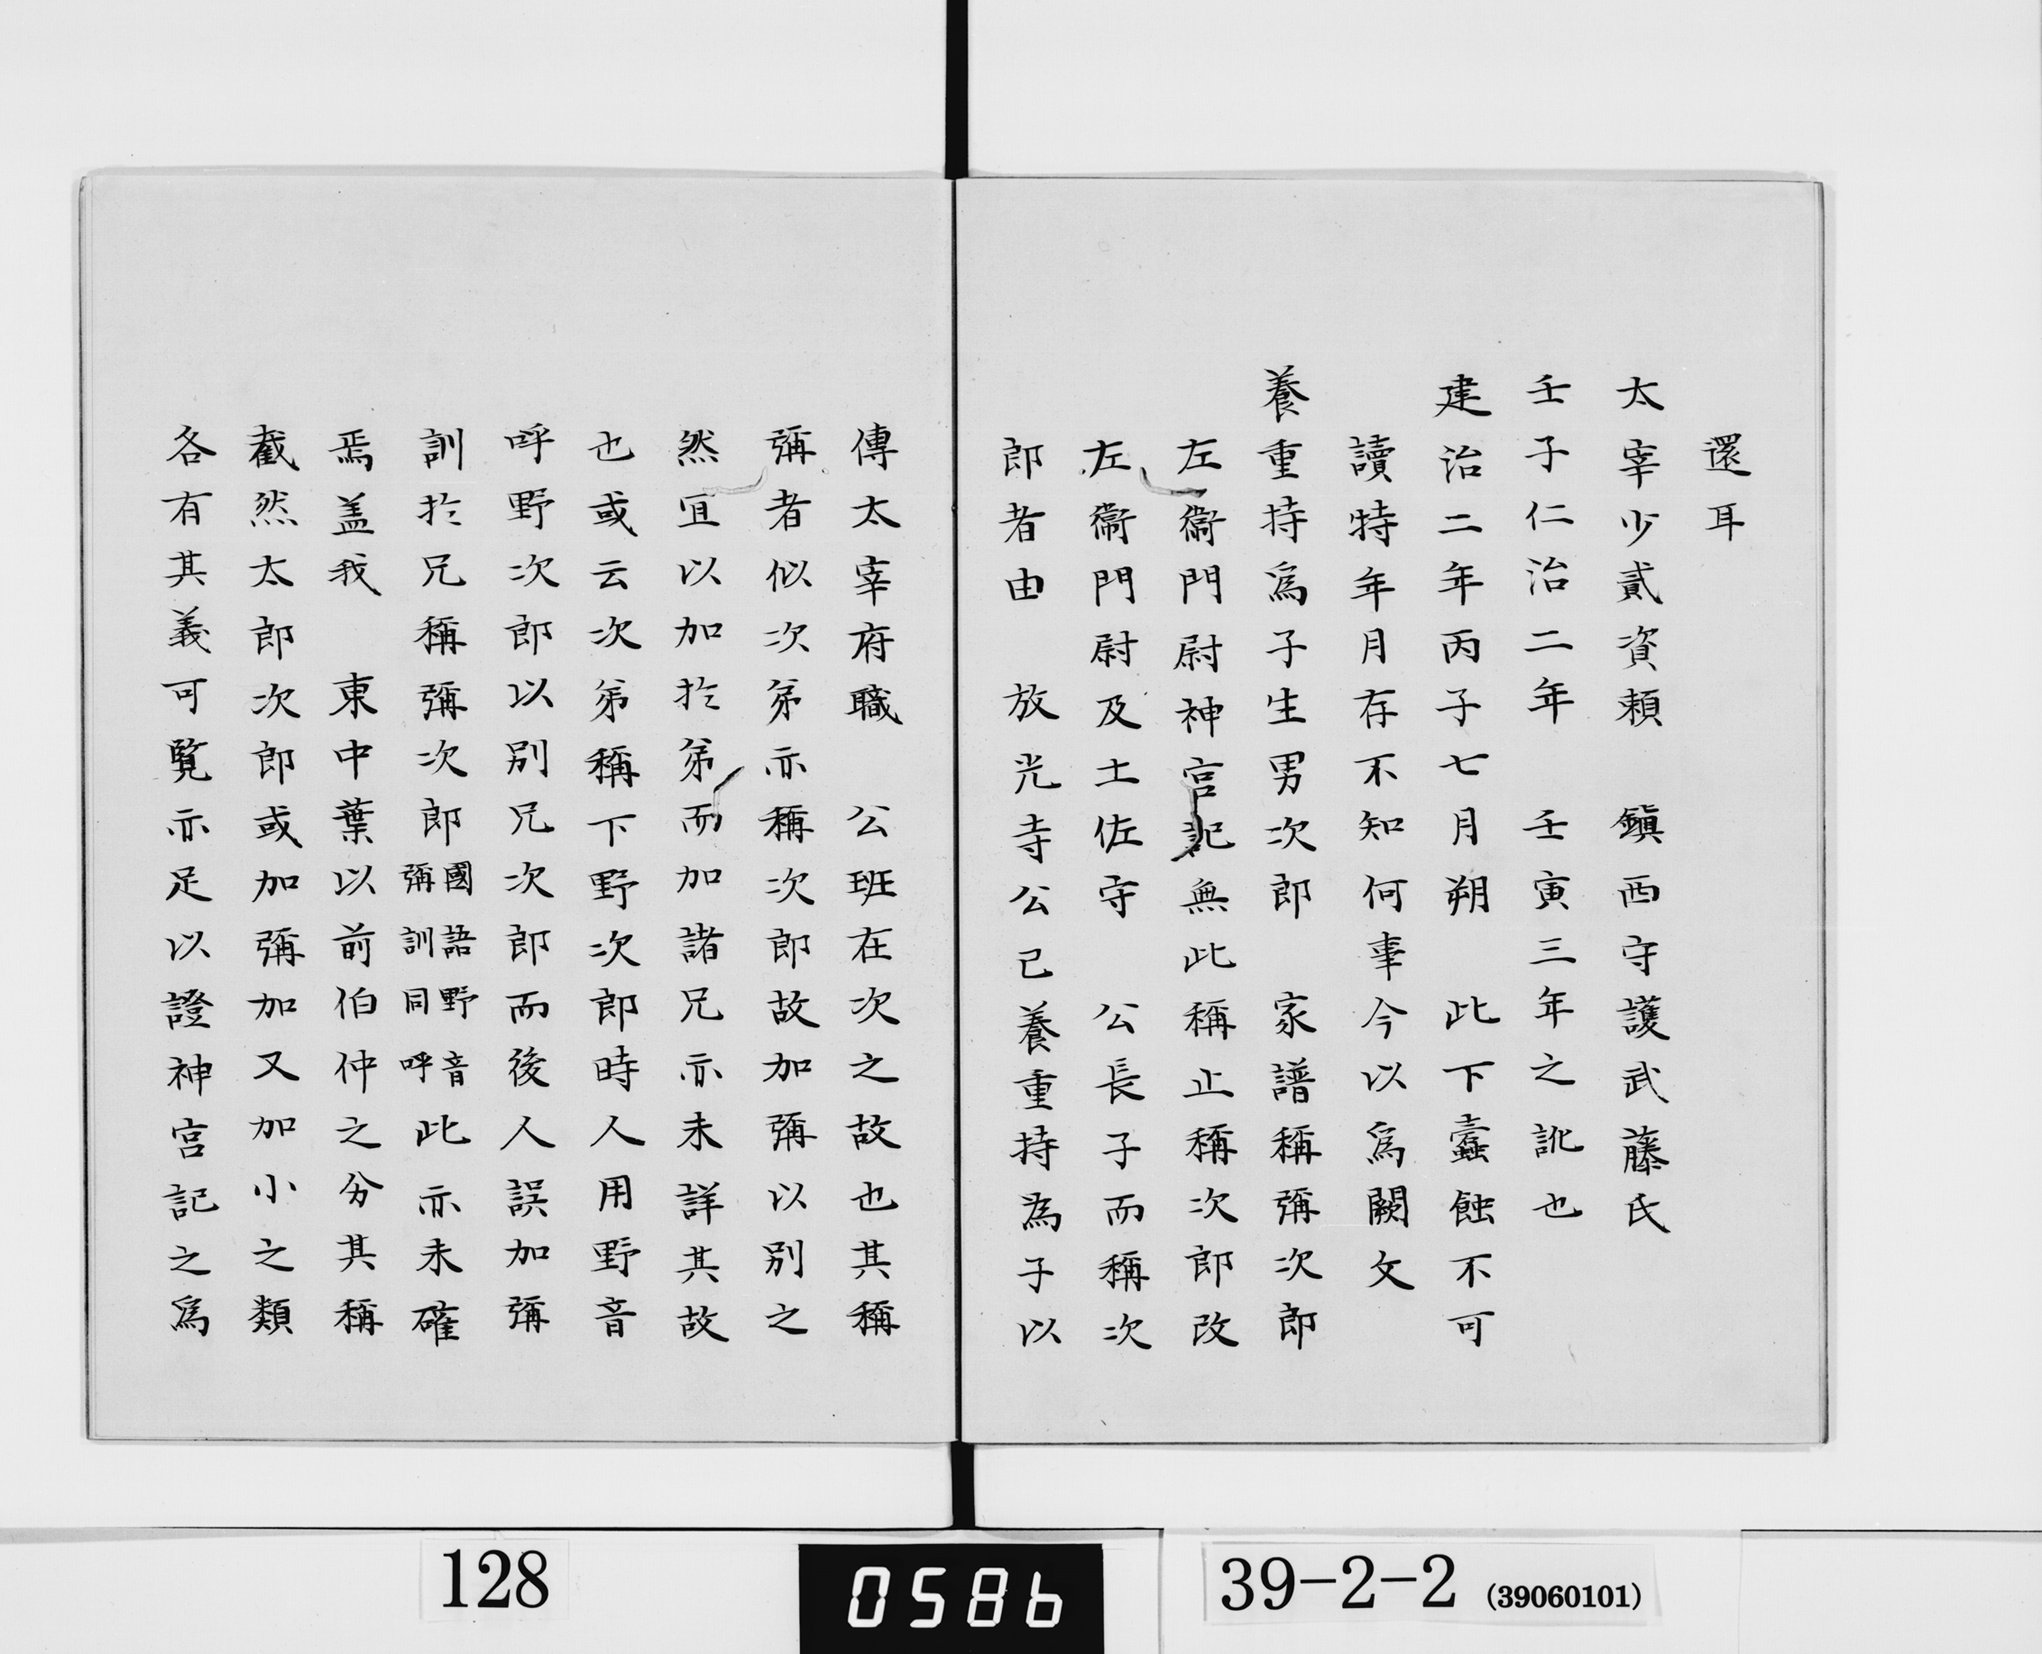 還耳
太宰少貳資頼　鎮西守護武藤氏
壬子仁治二年　壬寅三年之訛也
建治二年丙子七月朔　此下蠧蝕不可
讀特年月存不知何事今以爲闕文
養重持爲子生男次郎　家譜稱彌次郎
左衞門尉神宮記無此稱止稱次郎改
左衞門尉及土佐守　公長子而稱次
郎者由　放光寺公已養重持為子以
傳太宰府職　公班在次之故也其稱
彌者似次弟亦稱次郎故加彌以別之
然宜以加於弟而加諸兄亦未詳其故
也或云次弟稱下野次郎時人用野音
呼野次郎以別兄次郎而後人誤加彌
訓於兄稱彌次郎國語野音彌訓同呼此亦未確
焉盖我　東中葉以前伯仲之分其稱
截然太郎次郎或加彌加又加小之類
各有其義可覧亦足以證神宮記之爲
128
0586
39-2-2 (39060101)